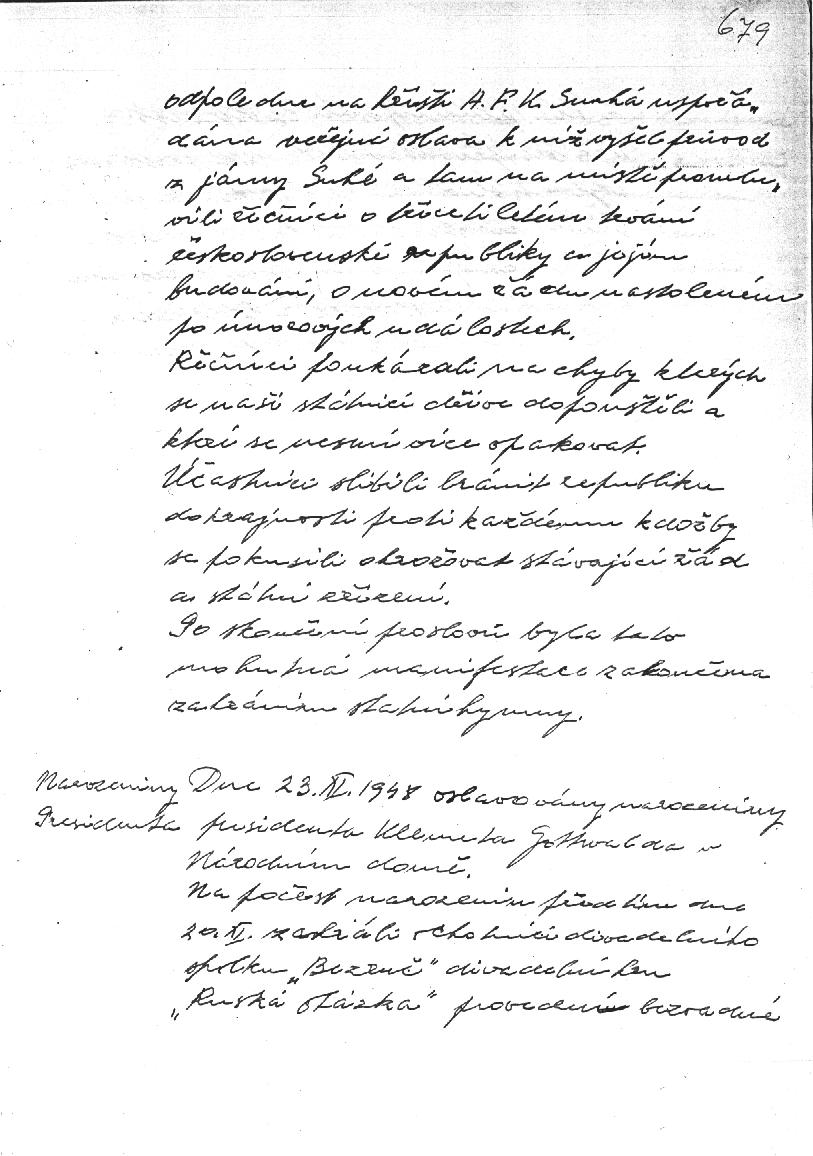 679
odpoledne na hřišti A.F.K. Suchá uspořá„
dána veřejná oslava k níž vyšel průvod
z jámy Suhé a tam na místě promlu„
vili řečníci o třicetiletém trvání
československé republiky a jejím
budování, o novém řádu nastoleném
po únorových událostech.
Řečníci poukázali na chyby kterých
se naši státníci dříve dopouštěli a
které se nesmí více opakovat.
Účastníci slíbili bránit republiku
do krajnosti proti každému kdožby
se pokusili ohrožovat stávající řád
a státní zřízení.
Po skončení proslovů byla tato
mohutná manifestace zakončena
zahráním státní hymny.
Narozeniny Dne 23.XI.1948 oslavovány narozeniny
Presidenta presidenta Klementa Gottwalda v
Národním domě.
Na počest narozenin předtím dne
20.XI. zahráli ochotníci divadelního
spolku „Bezruč" divadelní hru
„Ruská otázka" provedení bezvadné